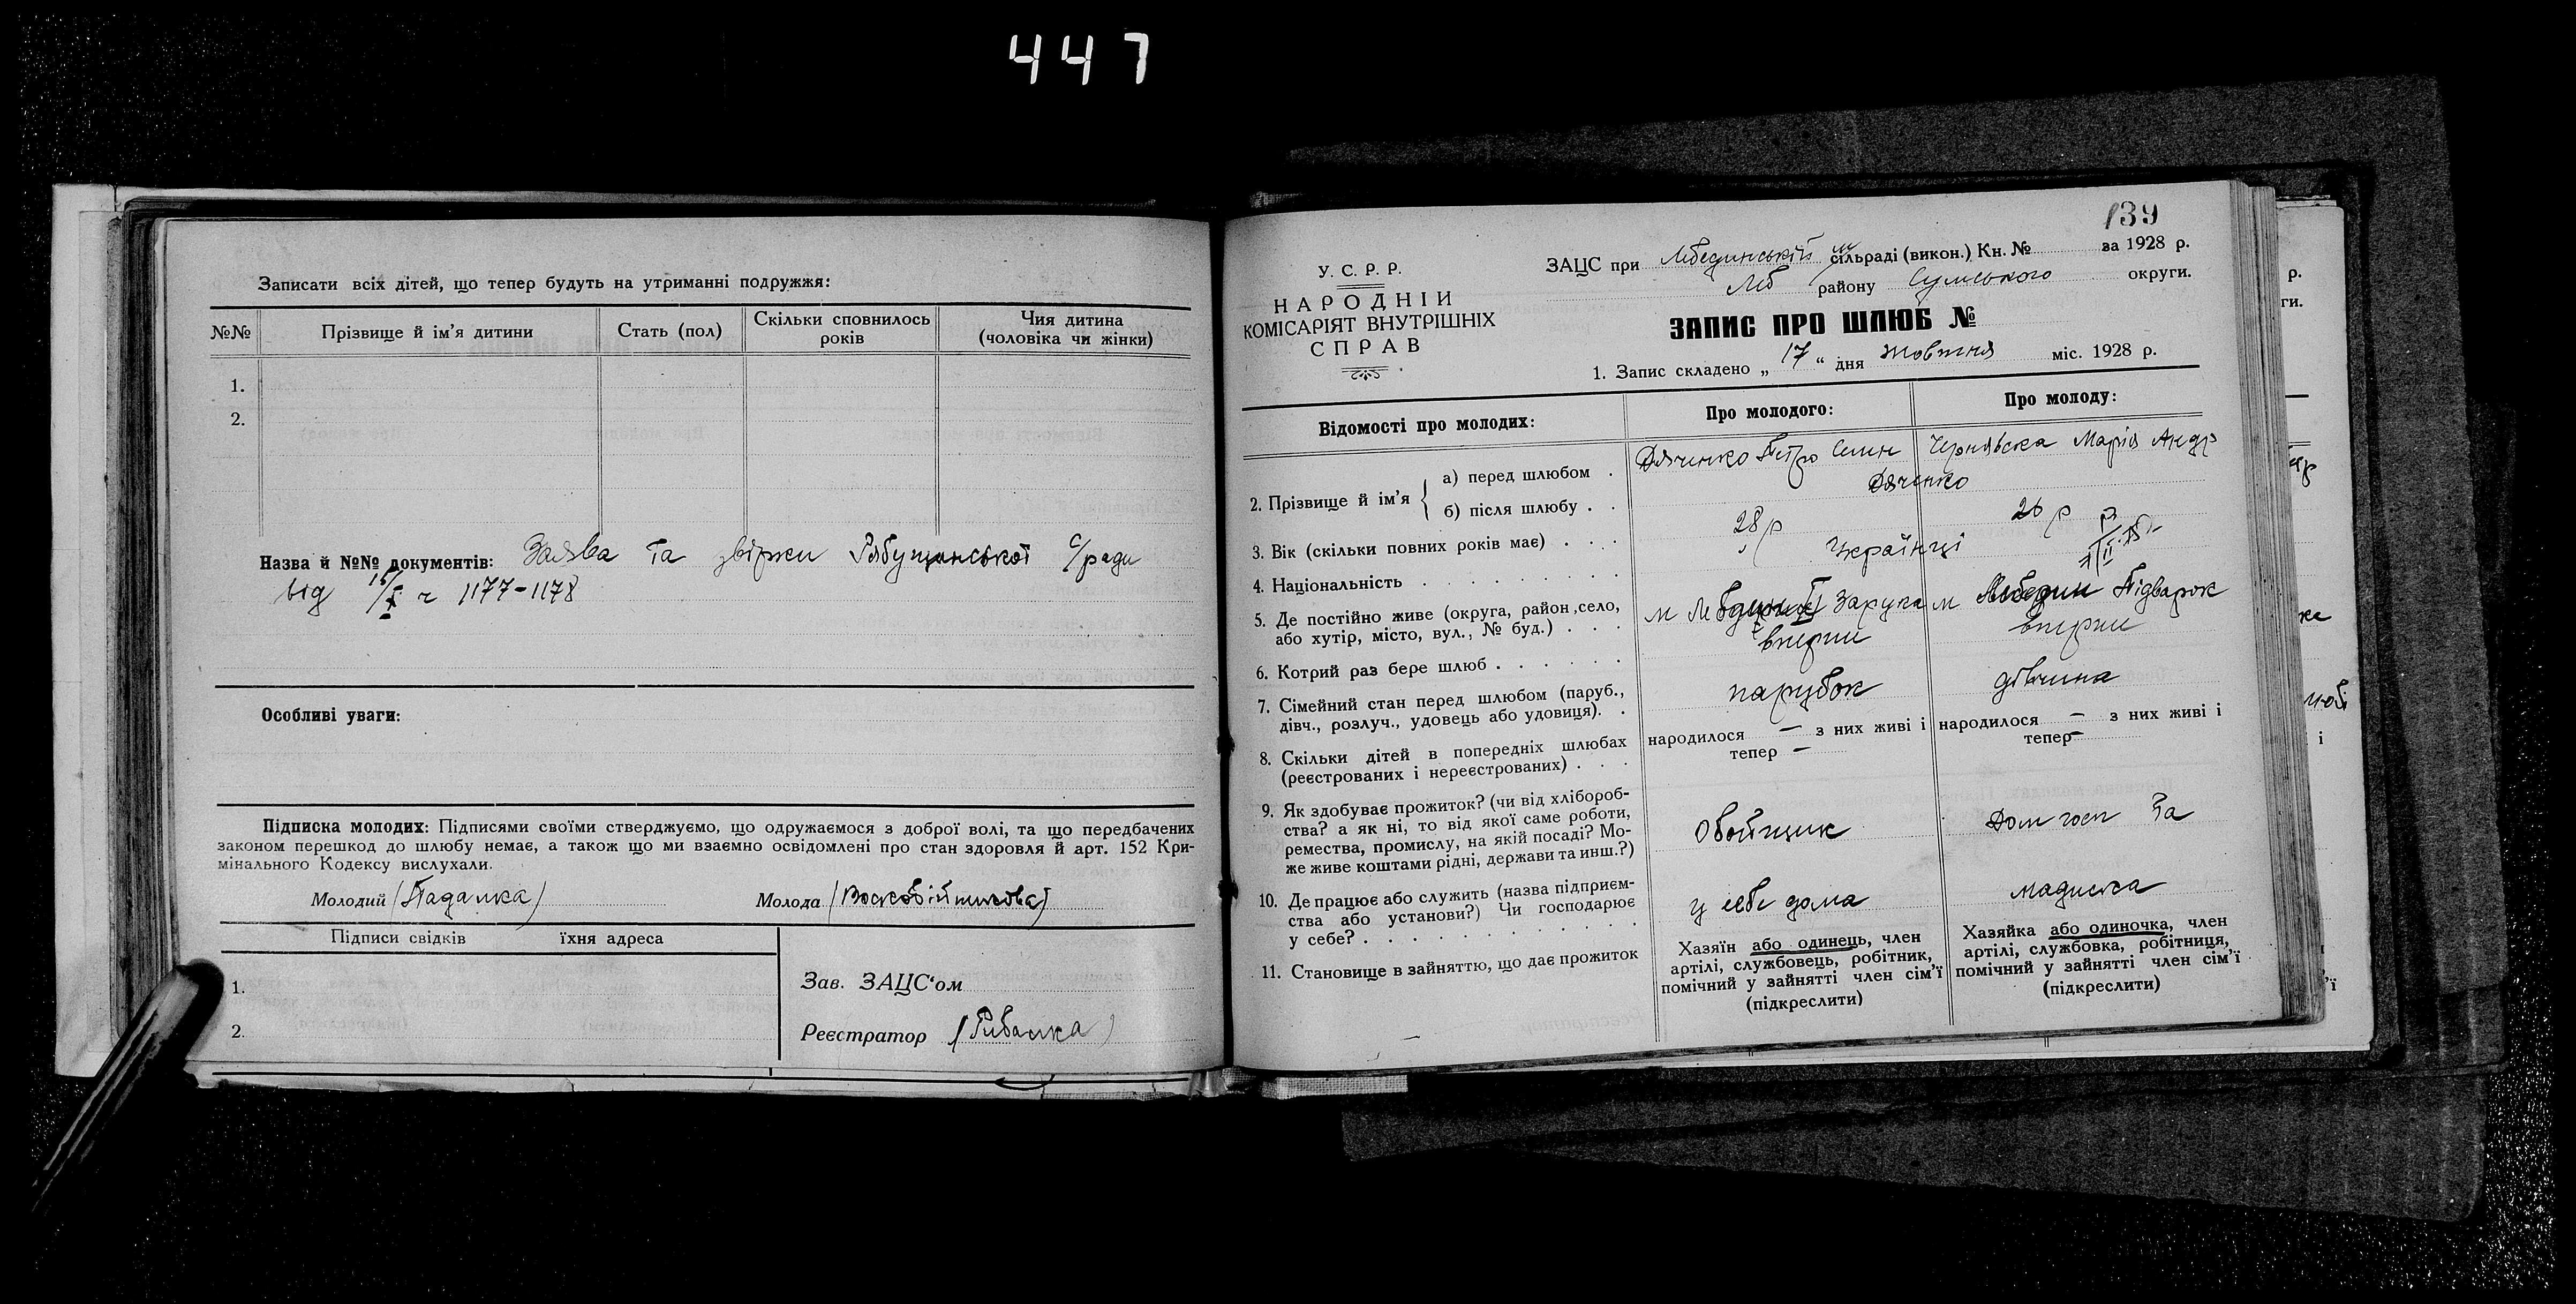 447
Записати всіх дітей, що тепер будуть на утриманні подружжя:
№№ Прізвище й ім'я дитини Стать (пол) Скільки сповнилось років Чия дитина (чоловіка чи жінки)
1.
2.
Назва й №№ документів: Заява та звірки Рябушанської с/ради
від 16/X ч 1177-1178
Особливі уваги:
Підписка молодих: Підписями своїми стверджуємо, що одружаємося з доброї волі, та що передбачених
законом перешкод до шлюбу немає, а також що ми взаємно освідомлені про стан здоровля й арт. 152 Кри-
мінального Кодексу вислухали.
Молодий (Падалка) Молода (Восковійникова)
Підписи свідків їхня адреса
1.
2.
Зав. ЗАЦС'ом
Реєстратор (Рибалка)
139
У. С. Р. Р.
НАРОДНІЙ
КОМІСАРІЯТ ВНУТРІШНІХ
СПРАВ
ЗАЦС при Лебединській м сільраді (викон.) Кн. № за 1928 р.
Леб району Сумського округи.
ЗАПИС ПРО ШЛЮБ №
1. Запис складено „ 17 “ дня жовтня міс. 1928 р.
Відомості про молодих: Про молодого: Про молоду:
2. Прізвище й ім'я
а) перед шлюбом . Дяченко Петро Семн Чернявська Марія Андр
б) після шлюбу . . Дяченко
3. Вік (скільки повних років має) . . . 28 р 26 р
4. Національність . . . Українці
5. Де постійно живе (округа, район, село,
або хутір, місто, вул., № буд.) . . . м Лебедин Зарука м Лебедин Підварок
6. Котрий раз бере шлюб . . . вперше вперше
7. Сімейний стан перед шлюбом (паруб.,
дівч., розлуч., удовець або удовиця). . парубок дівчина
8. Скільки дітей в попередніх шлюбах
(реєстрованих і нереєстрованих) . . .
народилося — з них живі і
тепер —
народилося — з них живі і
тепер —
9. Як здобуває прожиток? (чи від хлібороб-
ства? а як ні, то від якої саме роботи,
ремества, промислу, на якій посаді? Мо-
же живе коштами рідні, держави та инш.?)
Обойщик Дом госп та
10. Де працює або служить (назва підприєм-
ства або установи?) Чи господарює
у себе? . . .
у себе дома модистка
11. Становище в зайняттю, що дає прожиток
Хазяїн або одинець, член
артілі, службовець, робітник,
помічний у зайнятті член сім'ї
(підкреслити)
Хазяйка або одиночка, член
артілі, службовка, робітниця,
помічний у зайнятті член сім'ї
(підкреслити)